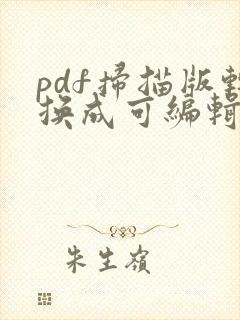 pdf掃描版轉
換成可編輯
朱生嶺